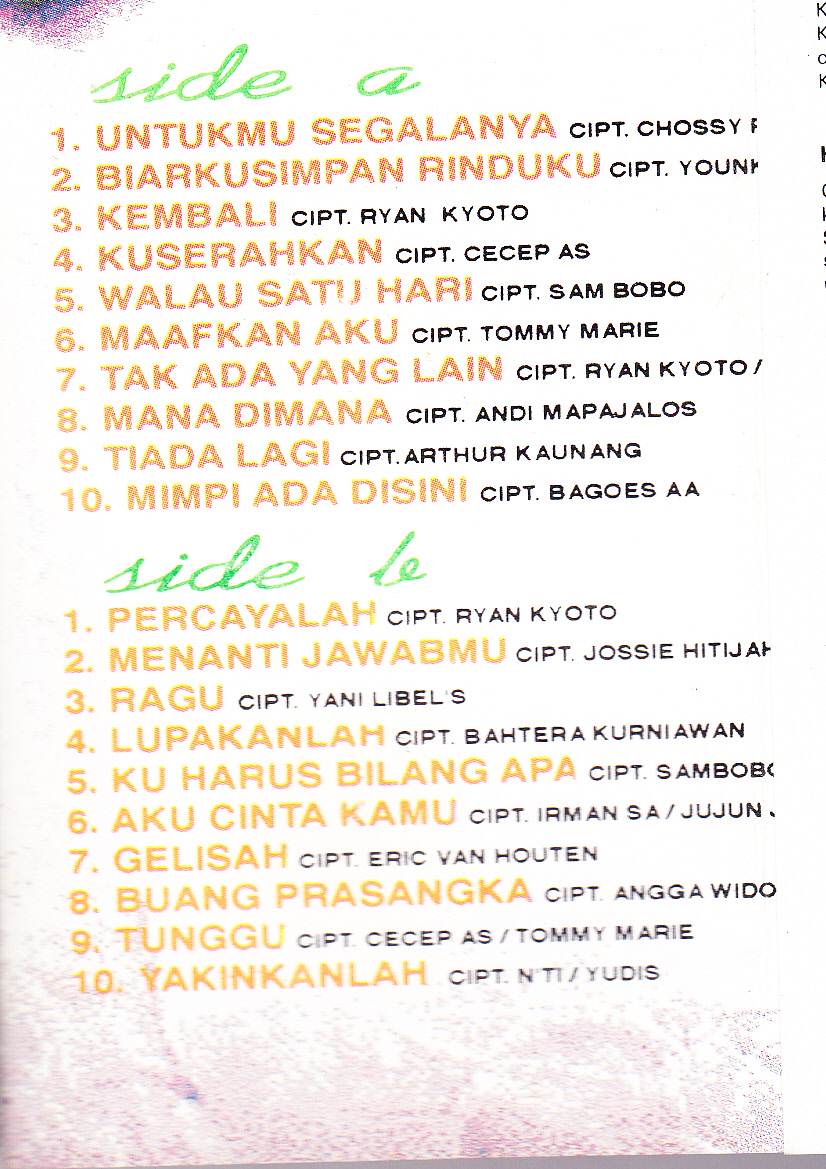 side a
1. UNTUKMU SEGALANYA CIPT. CHOSSY
2. BIARKUSIMPAN RINDUKU CIPT.
3. KEMBALI CIPT. RYAN KYOTO
4. KUSERAHKAN CIPT. CECEP AS
5. WALAU SATU HARI CIPT. SAM BOBO
6. MAAFKAN AKU CIPT. TOMMY MARIE
7. TAK ADA YANG LAIN CIPT. RYAN KYOTO /
8. MANA DIMANA CIPT. ANDI MAPAJALOS
9. TIADA LAGI CIPT. ARTHUR KAUNANG
10. MIMPI ADA DISINI CIPT. BAGOES AA
side b
1. PERCAYALAH CIPT. RYAN KYOTO
2. MENANTI JAWABMU CIPT. JOSSIE
3. RAGU CIPT. YANI LIBEL'S
4. LUPAKANLAH CIPT. BAHTERA KURNIAWAN
5. KU HARUS BILANG APA CIPT. SAMBOBO
6. AKU CINTA KAMU CIPT. IRMAN SA / JUJUN
7. GELISAH CIPT. ERIC VAN HOUTEN
8. BUANG PRASANGKA CIPT. ANGGA WIDO
9. TUNGGU CIPT. CECEP AS / TOMMY MARIE
10. YAKINKANLAH CIPT. N'TI / YUDIS